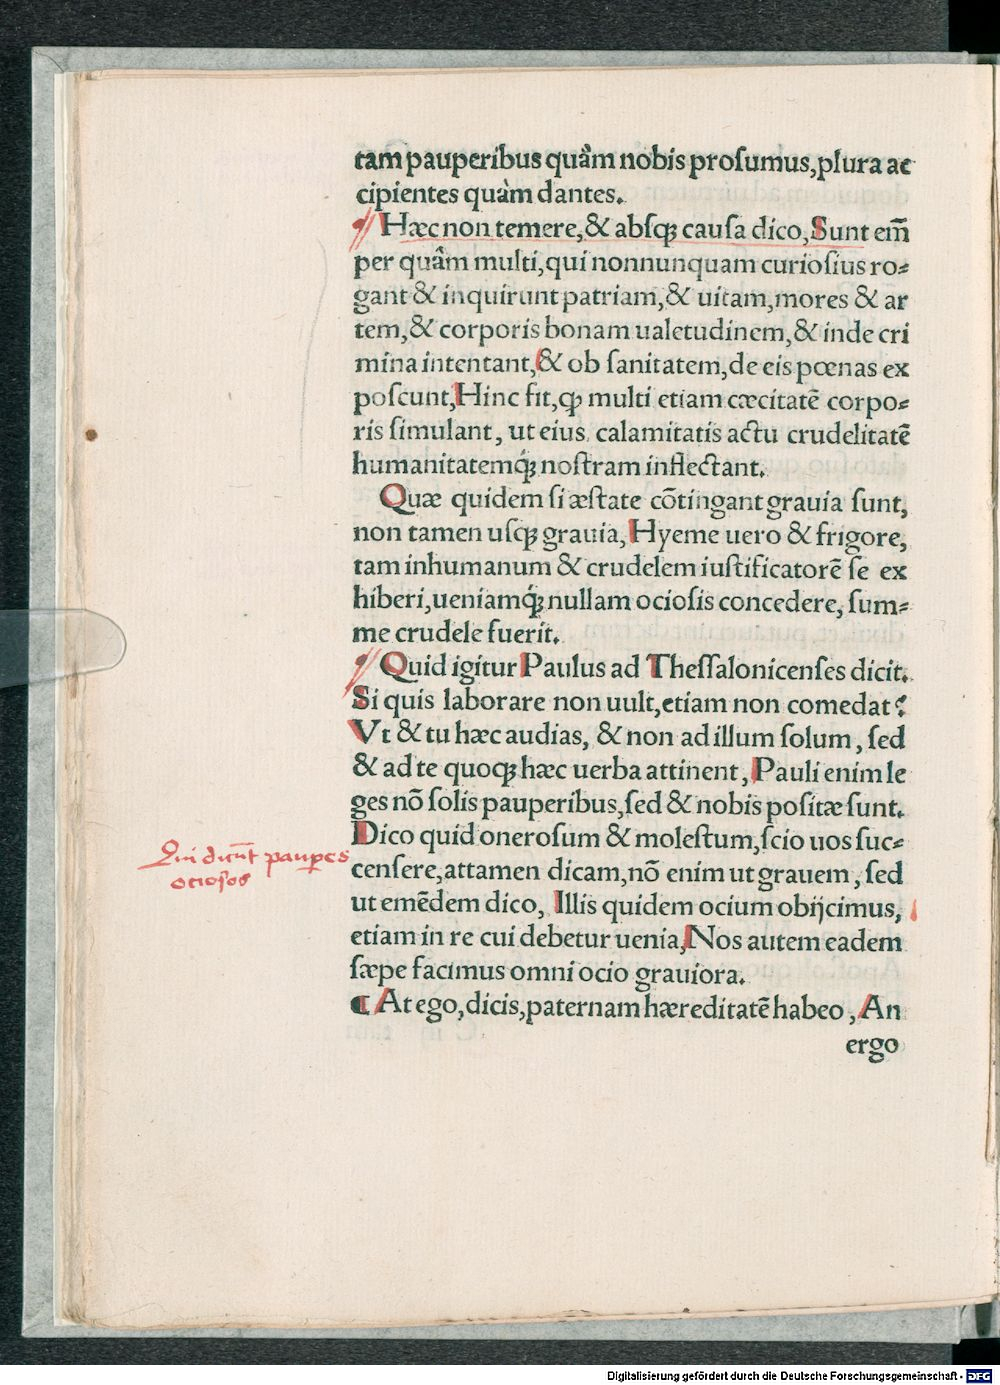 tam pauperibus quàm nobis proſumus, plura ac
cipientes quàm dantes.
Hæc non temere, & abſqꝫ cauſa dico, Sunt em̄
per quàm multi, qui nonnunquam curioſius ro⸗
gant & inquirunt patriam, & uitam, mores & ar
tem, & corporis bonam ualetudinem, & inde cri
mina intentant, & ob ſanitatem, de eis pœnas ex
poſcunt, Hinc fit, ꝙ multi etiam cæcitatē corpo⸗
ris ſimulant, ut eius calamitatis actu crudelitatē
humanitatemqꝫ́ noſtram inflectant.
Quæ quidem ſi æſtate cōtingant grauia ſunt,
non tamen uſqꝫ grauia, Hyeme uero & frigore,
tam inhumanum & crudelem iuſtificatorē ſe ex
hiberi, ueniamqꝫ́ nullam ocioſis concedere, ſum⸗
me crudele fuerit.
Quid igitur Paulus ad Theſſalonicenſes dicit.
Si quis laborare non uult, etiam non comedat?
Vt & tu hæc audias, & non ad illum ſolum, ſed
& ad te quoqꝫ hæc uerba attinent, Pauli enim le
ges nō ſolis pauperibus, ſed & nobis poſitæ ſunt.
Dico quid oneroſum & moleſtum, ſcio uos ſuc⸗
cenſere, attamen dicam, nō enim ut grauem, ſed
ut emēdem dico, Illis quidem ocium obijcimus,
etiam in re cui debetur uenia, Nos autem eadem
ſæpe facimus omni ocio grauiora.
¶ At ego, dicis, paternam hæreditatē habeo, An
ergo
Qui dicūt pauꝑes
ocioſos
Digitalisierung gefördert durch die Deutsche Forschungsgemeinschaft - DFG